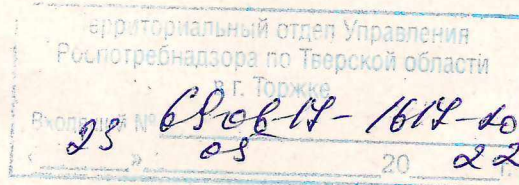 Территориальный отдел Управления
Роспотребнадзора по Тверской области
в г. Торжке
Входящий № 690617-1617-20
« 23 » 05 20 22 г.